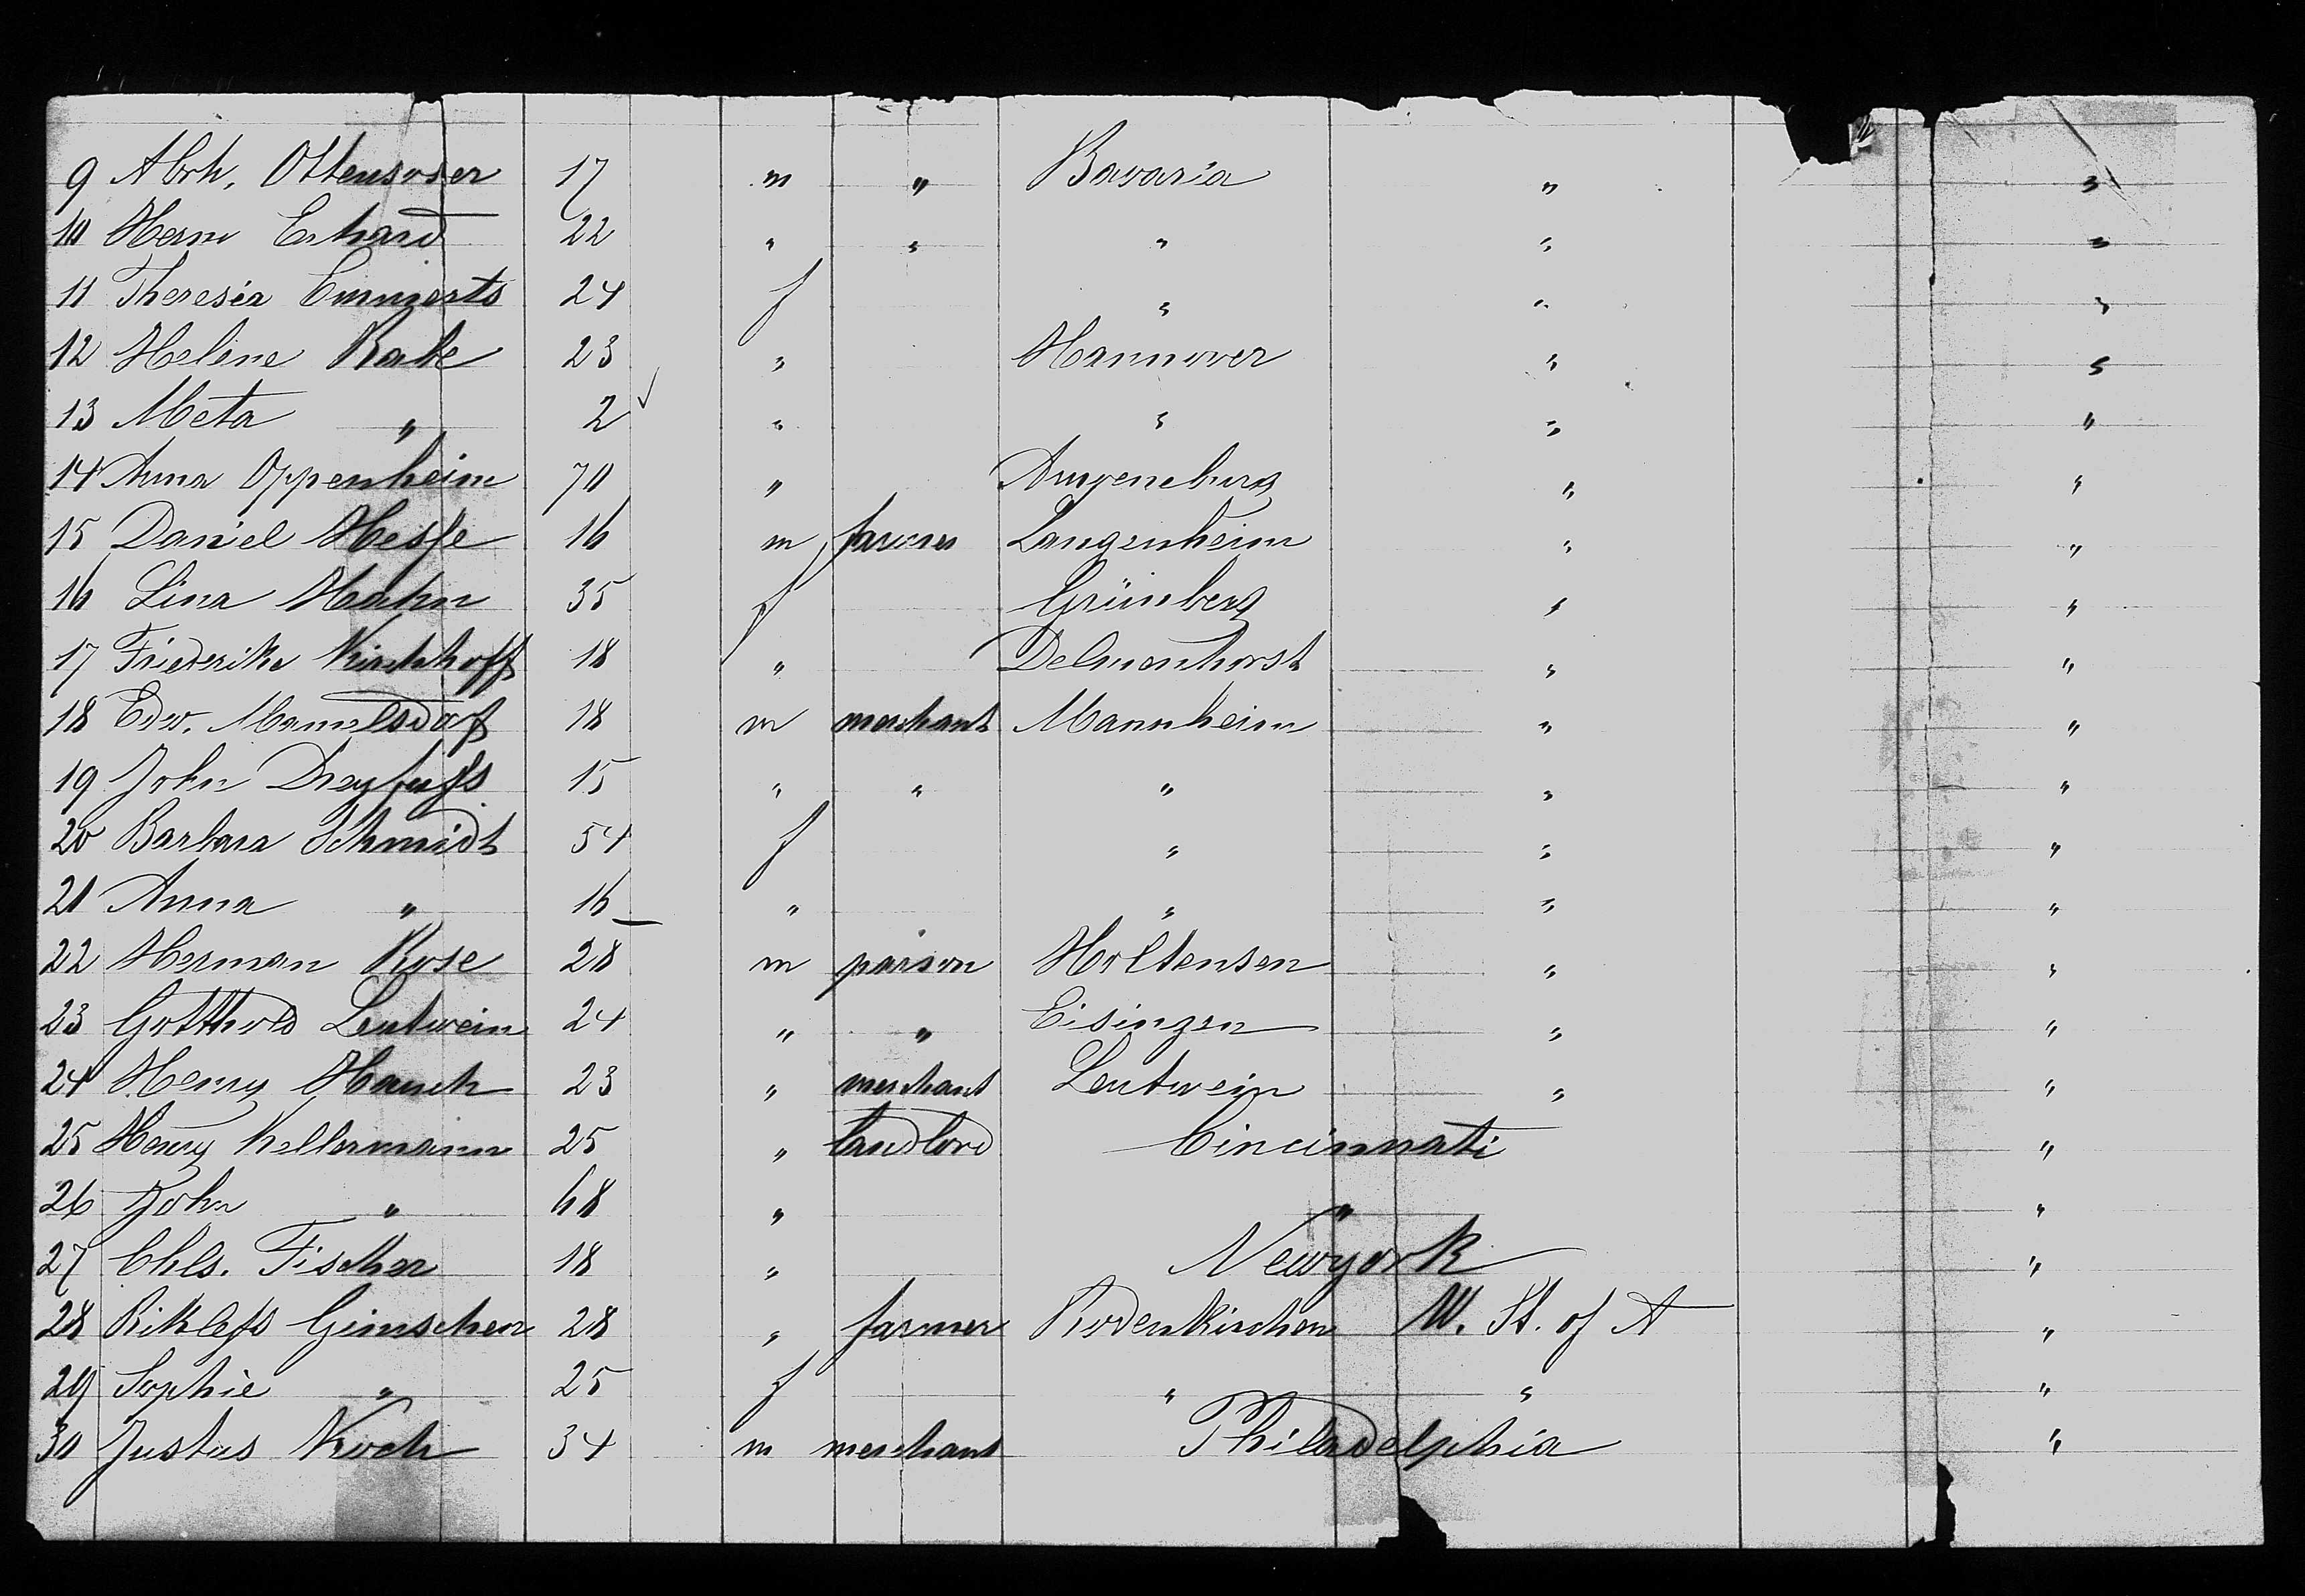 9 Abrh. Ottensoser 17 m " Bavaria " "
10 Herm Erhard 22 " " " " "
11 Theresia Emmerts 24 f " " "
12 Helene Rabe 23 " Hannover " "
13 Meta " 2 " " " "
14 Anna Oppenheim 70 " " "
15 Daniel Hesse 16 m farmer Langenheim " "
16 Lina Hahn 35 f Grünberg " "
17 Friederike Kirchhoff 18 " Delmenhorst " "
18 Edw. Mamelsdorf 18 m merchant Mannheim " "
19 John Dreyfuss 15 " " " " "
20 Barbara Schmidt 54 f " " "
21 Anna " 16 " " " "
22 Herman Rose 28 m parson Holtensen " "
23 Gotthold Leutwein 24 " " Eisingen " "
24 Henry Hauch 23 " merchant Leutwein " "
25 Henry Kellermann 25 " landlord Cincinnati "
26 John " 68 " " "
27 Chls. Fischer 18 " Newyork "
28 Riklefs Gimschen 28 " farmer Rodenkirchen U. St. of A "
29 Sophie " 25 f " " "
30 Justus Koch 34 m merchant Philadelphia "